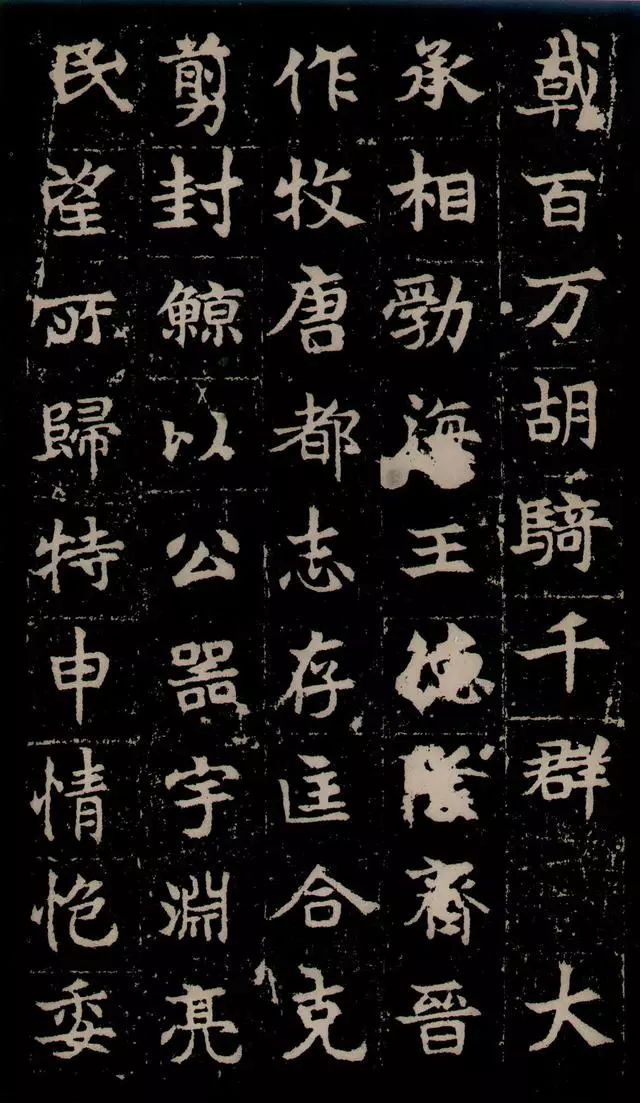 戟百万胡騎千群大
承相勃海王德隆齊晉
作牧唐都志存匡合克
剪封鯨以公器宇淵亮
民望所歸特申情㤝委